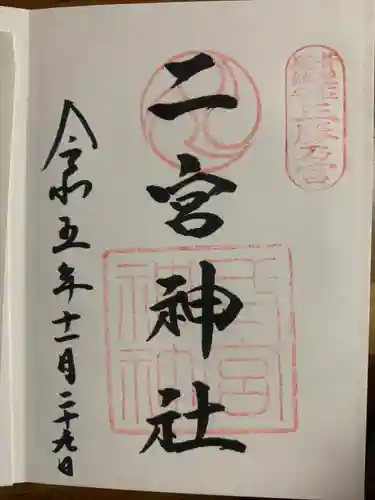 二宮神社
令和五年十一月二十九日